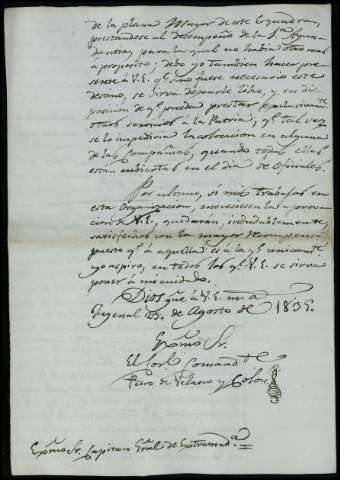 de la plana Mayor de este Esquadron,
prestandose al desempeño de la 2ª Ayun-
dantia, para la qual no habia otro mas
a proposito; debo yo tambien hacer pre-
sente á V.E. qº si no fuese necesario este
deseno, se sirva deparle libre, y en dis-
posicion de qº pueda prestar
otros servicios á la Patria, qº tal vez
se lo impediria la colocacion en alguna
de las Compañias, quando todas ellas
estan indicotas en el dia de Oficiales.
Por ultimo, si mis trabajos en
esta Organizacion, merecieren la aprova-
cion de V.E. quedarán, indudablemente,
satisfechos con la mayor recompensa
puesto qº á aquella es á la qº unicamte
yo aspiro, en todos los qº V.E. se sirva
poner á mi cuidado.
Dios gue á V.E. m. a.
Fregenal 23. de Agosto de 1835.
Exmo Sr.
El Corl Comandte
Pedro de Velasco y Colon
Exmo Sr. Capitan Gral de Extremadª =